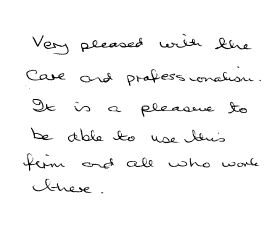 Very pleased with the
Care and professionalism.
It is a pleasure to
be able to use this
firm and all who work
there.